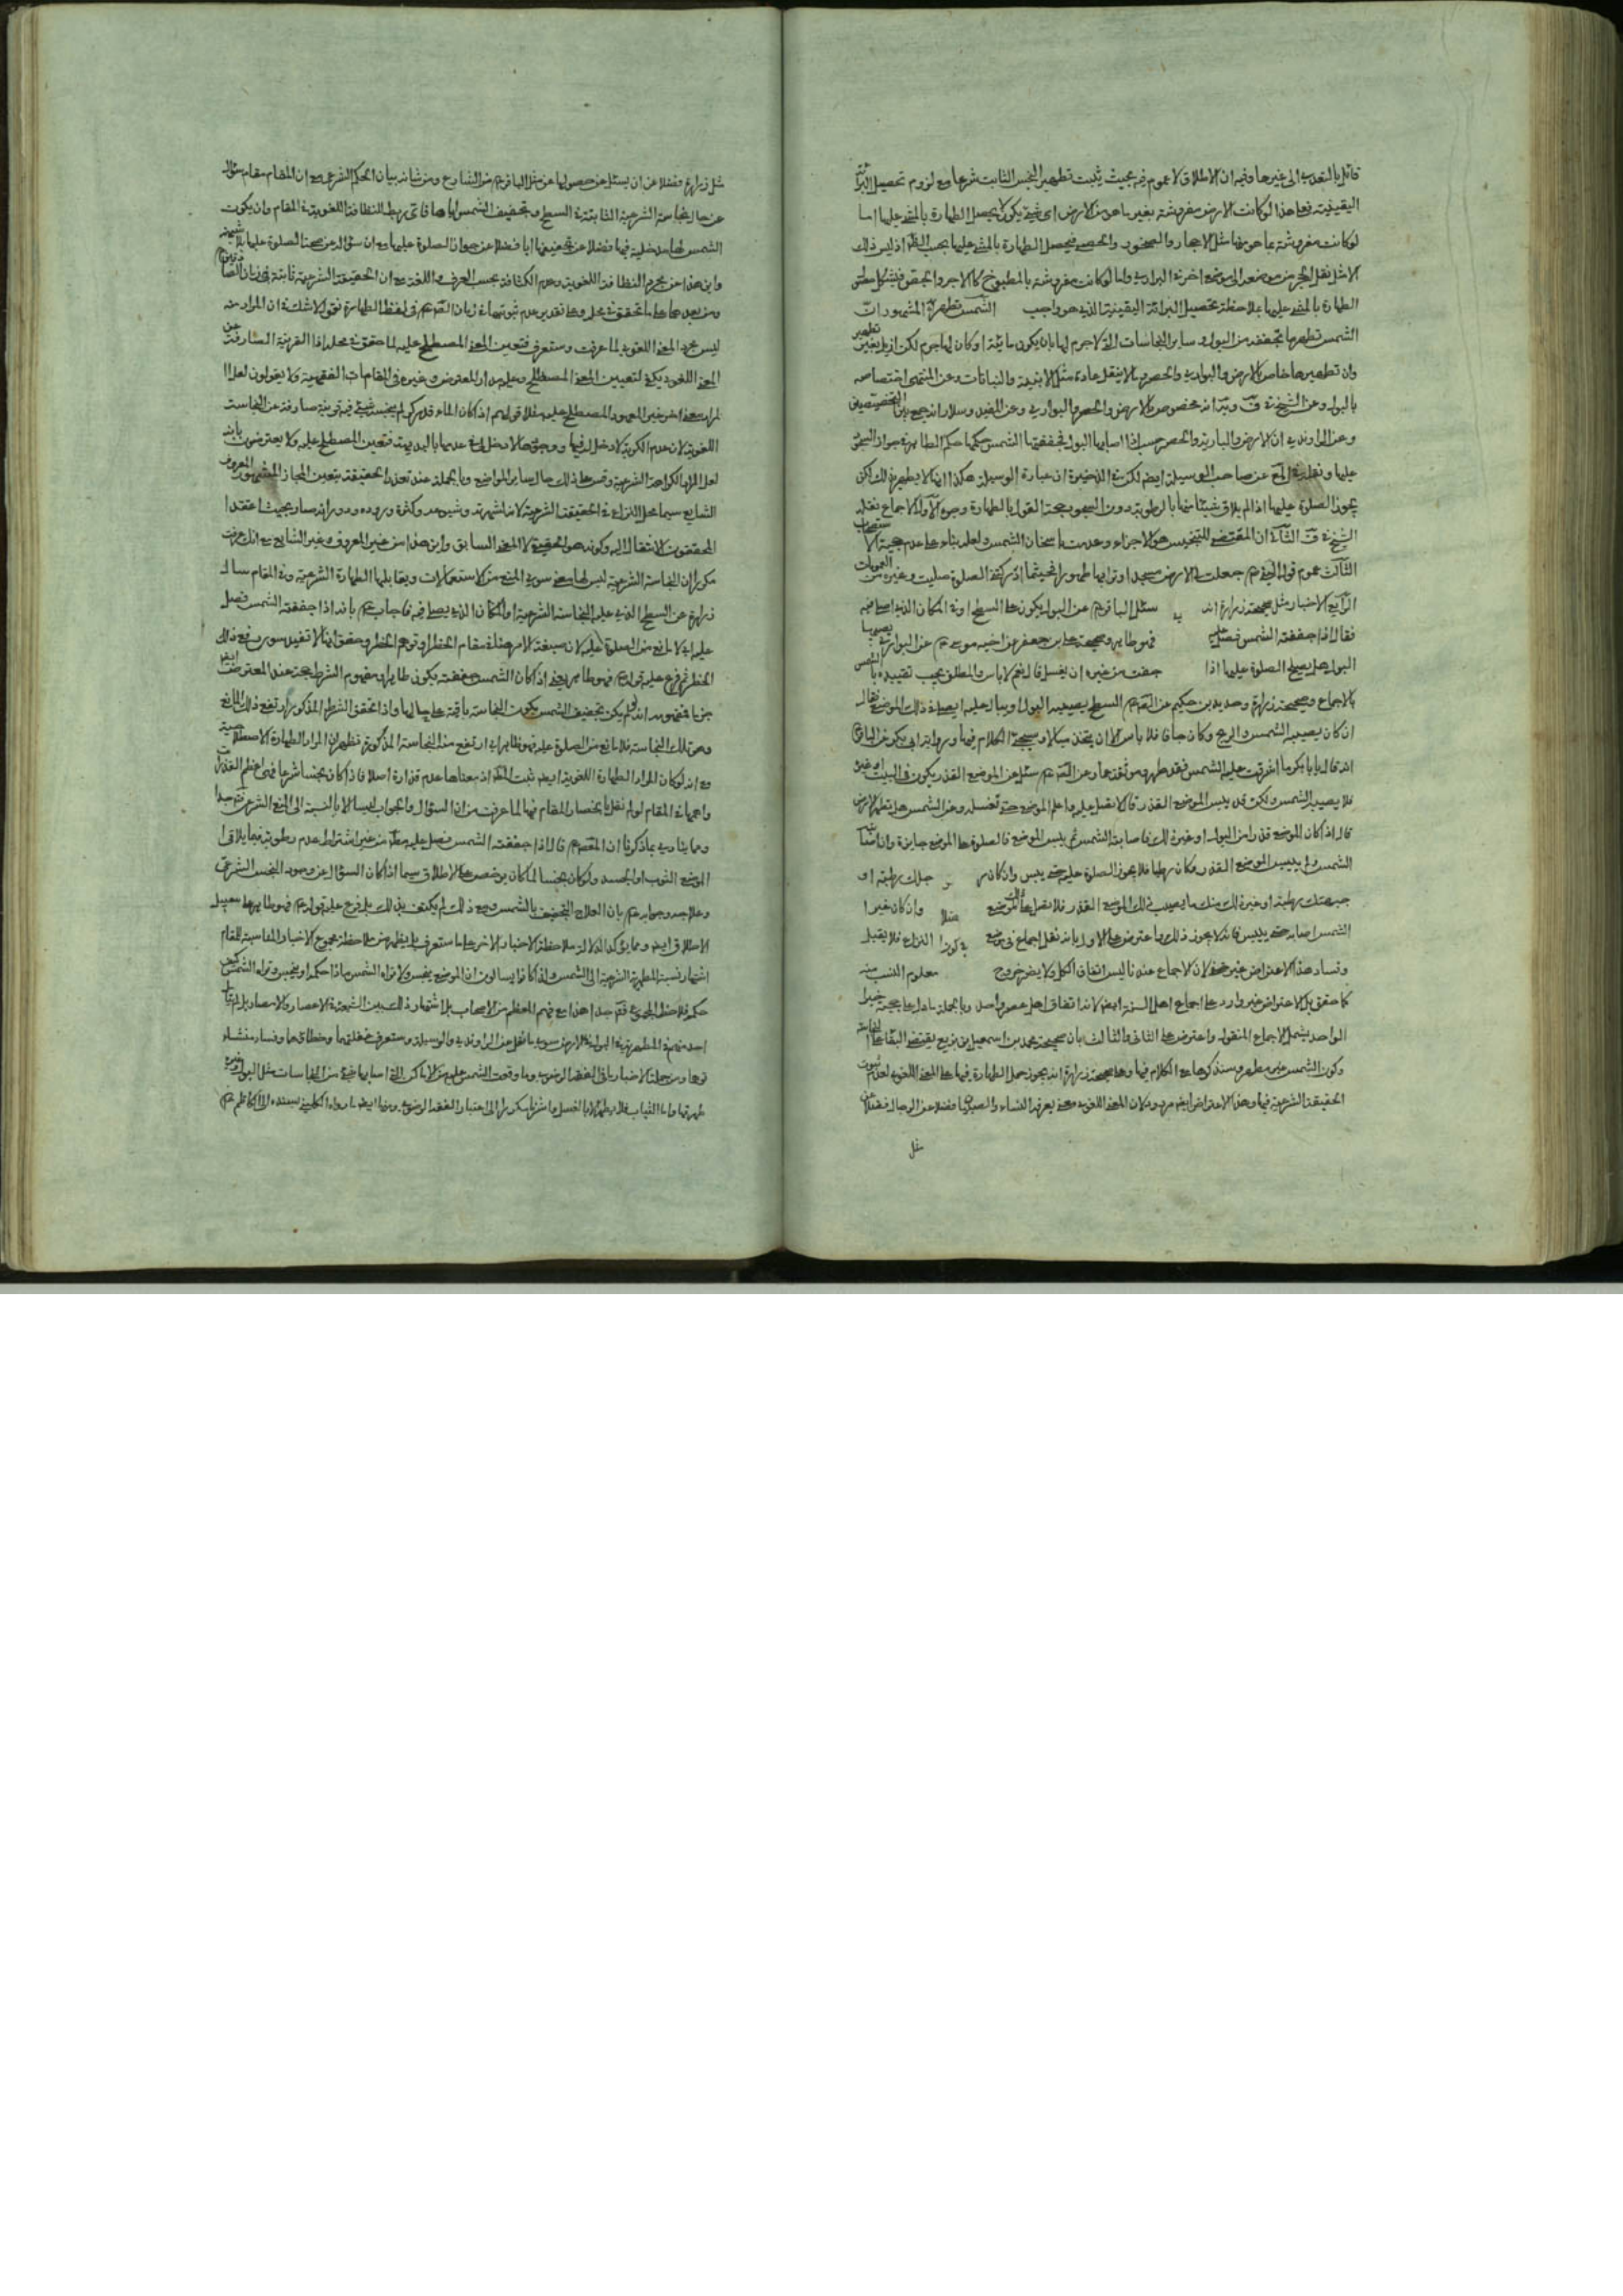 قائل بالتعدى الى غيرها وفيه ان الاطلاق لا عموم فيه بحيث يثبت تطهير النجس الثابت شرعا مع لزوم تحصيل البرائة
اليقينية فعلى هذا لو كانت الارض مفروشة بغير ما هو من الارض اى شىء يكون لا يحصل الطهارة بالمشى عليها اما
لو كانت مفروشة بما هو منها مثل الاحجار والصخور والحصى فيحصل الطهارة بالمشى عليها بحسب الظ اذ ليس ذلك
الا مثل نقل الحجر من موضعه الى موضع اخر فى البرارى واما لو كانت مفروشة بالمطبوخ كالاجر والجص فيشكل
الطهارة بالمشى عليها بملاحظة تحصيل البرائة اليقينية الذى هو واجب الشمس تطهرة المشهور ان
الشمس تطهر ما تجففه من البول وساير النجاسات التى لا جرم لها بان يكون مائية او كان لها جرم لكن ازيل بغير تطهير
وان تطهيرها خاص بالارض والبوارى والحصر وما لا ينقل عادة مثل الابنية والنباتات وعن المنتهى اختصاصه
بالبول وعن الشيخ فى ف و انه مخصوص بالارض والحصر والبوارى وعن المفيد وسلار انه جمع بين التخصيصين
وعن الراوندى ان الارض والبارية والحصر حسب اذا اصابها البول فجففتها الشمس حكمها حكم الطاهر فى جواز السجود
عليها ونقل فى عن صاحب الوسيلة ايضا لكن فى الذخيرة ان عبارة الوسيلة هكذا انها لا يطهر بذلك لكن
يجوز الصلوة عليها اذا لم يلاق شيئا منها بالرطوبة دون السجود حجة القول بالطهارة وجوه الاول الاجماع نقله
الشيخ فى ف الثانى ان المقتضى للتنجيس هو الاجزاء وعدمت باسخان الشمس ولعله بناء على عدم حجية الاستصحاب
الثالث عموم قوله جعلت لى الارض مسجدا وترابها طهورا اينما ادركتنى الصلوة صليت وغيره من العمومات
الرابع الاخبار مثل صحيحة زرارة انه سئل الباقر عن البول يكون على السطح او فى المكان الذى اصلى فيه
فقال اذا جففته الشمس فصل عليه فهو طاهر وصحيحة على بن جعفر عن اخيه موسى عن البوارى يصيبها
البول هل يصلح الصلوة عليها اذا جفت من غير ان يغسل قال نعم لا باس والمطلق يجب تقييده
بالاجماع وصحيحة زرارة وحديد بن حكيم عن السطح يصيبه البول او يبال عليه ايصلى فى ذلك الموضع فقال
ان كان يصيبه الشمس والريح وكان جافا فلا باس الا ان يتخذ مبالا وسيجىء الكلام فيها ورواية ابى بكر عن الباقر
انه قال يا ابا بكر ما اشرقت عليه الشمس فقد طهر وموثقة عمار عن سئل عن الموضع القذر يكون فى البيت او غيره
فلا يصيبه الشمس ولكن قد يبس الموضع القذر قال لا يصلى عليه واعلم الموضع حتى تغسله وعن الشمس هل تطهر الارض
قال اذا كان الموضع قذرا من البول او غير ذلك فاصابته الشمس ثم يبس الموضع فالصلوة على الموضع جايزة وان اصابته
الشمس ولم ييبس الموضع القذر وكان رطبا فلا يجوز الصلوة عليه حتى ييبس وان كان رجلك رطبة او
جبهتك رطبة او غير ذلك منك ما يصيب ذلك الموضع القذر فلا تصل على الموضع وان كان غير
الشمس اصابه حتى ييبس فانه لا يجوز ذلك واعترض على الاول بانه نقل اجماع فى موضع النزاع فلا يقبل
وفساد هذا الاعتراض غير خفى لان الاجماع عندنا ليس اتفاق الكل ولا يضر خروج معلوم النسب منه
كما حقق بل الاعتراض غير وارد على اجماع اهل السنة ايضا لانه اتفاق اهل عصر واحد وبالجملة ما دل على حجية خبر
الواحد يشمل الاجماع المنقول واعترض على الثانى والثالث بان صحيحة محمد بن اسمعيل بن بزيع يقتضى البقاء على النجاسة
وكون الشمس غير مطهر وسنذكرها مع الكلام فيها وعلى صحيحة زرارة انه يجوز حمل الطهارة فيها على المعنى اللغوى لعدم ثبوت
الحقيقة الشرعية فيها وهذا الاعتراض ايضا مردود لان المعنى اللغوى معنى يعرفه النساء والصبيان فضلا عن الرجال فضلا عن
مثل
مثل زرارة فضلا عن ان يسئل عن حصولها عن مثل الباقر من الشارع ومن شانه بيان الحكم الشرعى مع ان المقام مقام سؤال
عن حال نجاسة الشرعية الثابتة فى السطح وتجفيف الشمس اياها فاى ربط للنظافة اللغوية فى المقام وان يكون
الشمس لها مدخلية فيها فضلا عن تجفيفها اياها فضلا عن جواز الصلوة عليها مع ان سؤاله عن صحة الصلوة عليها بلا شبهة
واين هذا من مجرد النظافة اللغوية وعدم الكثافة بحسب العرف واللغة مع ان الحقيقة الشرعية ثابتة فى زمان
ومن بعدها على ما تحقق فى محله وعلى تقدير عدم ثبوتها فى زمان فى لفظ الطهارة نقول لا شك فى ان المراد منه
ليس مجرد المعنى اللغوى لما عرفت وستعرف فتعين المعنى المصطلح عليه لما حقق فى محله اذا القرينة الصارفة عن
المعنى اللغوى يكفى لتعيين المعنى المصطلح وعليه مدار المعترض وغيره فى المقامات الفقهية ولا يقولون لعل
المراد معنى اخر غير المعهود المصطلح عليه مثلا قولهم اذا كان الماء قدر كر لم ينجسه شىء فيه قرينة صارفة عن النجاسة
اللغوية لان عدم الكرية لا دخل له فيها ووجودها لا دخل له فى عدمها بالبديهة فتعين المصطلح عليه ولا يعترضون بانه
لعل المراد الكراهة الشرعية وقس على ذلك حال ساير المواضع وبالجملة عند تعذر الحقيقة يتعين المجاز المشهور المعروف
الشايع سيما محل النزاع فى الحقيقة الشرعية لانه لشهرته وشيوعه وكثرة وروده ودورانه صار بحيث اعتقد
المحققون الانتقال اليه وكونه هو الحقيقة لا المعنى السابق واين هذا من غير المعروف وغير الشايع مع انك عرفت
مكررا ان النجاسة الشرعية ليس لها معنى سوى المنع من الاستعمالات ويقابلها الطهارة الشرعية وفى المقام سال
زرارة عن السطح الذى عليه النجاسة الشرعية او المكان الذى يصلى فيه فاجاب بانه اذا جففته الشمس فصل
عليه اى لا مانع من الصلوة عليه لان صيغة الامر هنا فى مقام الحظر او توهم الحظر وحقق انها لا تفيد سوى رفع ذلك
الحظر ثم فرع عليه قوله فهو طاهر يعنى اذا كان الشمس جففته يكون طاهرا ومفهوم الشرط حجة عند المعترض ايضا
جزما فمفهومه انه لو لم يكن تجفيف الشمس يكون النجاسة باقية على حالها واذا تحقق الشرط المذكور ارتفع ذلك المانع
وهو تلك النجاسة فلا مانع من الصلوة عليه فهو طاهر اى ارتفع منه النجاسة المذكورة فظهر ان المراد الطهارة الاصطلاحية
مع انه لو كان المراد الطهارة اللغوية ايضا ثبت اذ معناها عدم قذارة اصلا فاذا كان نجسا شرعا فهى اعظم القذارات
واهمها فى المقام لو لم نقل بانحصار المقام فيها لما عرفت من ان السؤال والجواب ليسا الا بالنسبة الى المنع الشرعى فتدبر جدا
ومما ينادى بما ذكرنا ان المعصوم قال اذا جففته الشمس فصل عليه مطلقا من غير اشتراط عدم رطوبته فيما يلاقى
الموضع الثوب او الجسد ولو كان نجسا لما كان يرخص على الاطلاق سيما اذا كان السؤال عن وجود النجس الشرعى
وعلاجه وجوابه بان العلاج التجفيف بالشمس ومع ذلك لم يكتف بذلك بل فرع عليه قوله فهو طاهر على سبيل
الاطلاق ايضا ومما يؤكد الدلالة ملاحظة الاخبار الاخر على ما ستعرف بل يظهر من ملاحظة مجموع الاخبار المناسبة للمقام
اشتهار نسبة المطهرية الشرعية الى الشمس ولذا كانوا يسالون ان الموضع ينجس ولا تراه الشمس ماذا حكمه او ينجس وتراه الشمس كيف
حكمه فلاحظ المجموع فتدبر جدا هذا مع فهم المعظم من الاصحاب بل اشتهار ذلك بين الشيعة فى الاعصار والامصار بل لم يتامل
احد منهم فى المطهرية فى البول فى الارض سوى ما نقل عن الراوندى والوسيلة وستعرف غفلتهما وخطائهما وفساد منشاء
توهما ومن جملة الاخبار ما فى الفقه الرضوى وما وقعت الشمس عليه من الاماكن التى اصابها شىء من النجاسات مثل البول وغيره
طهرتها واما الثياب فلا يطهر الا بالغسل واشرنا مكررا الى اعتبار الفقه الرضوى ومنها ايضا ما رواه الكلينى بسنده الى الكاظم